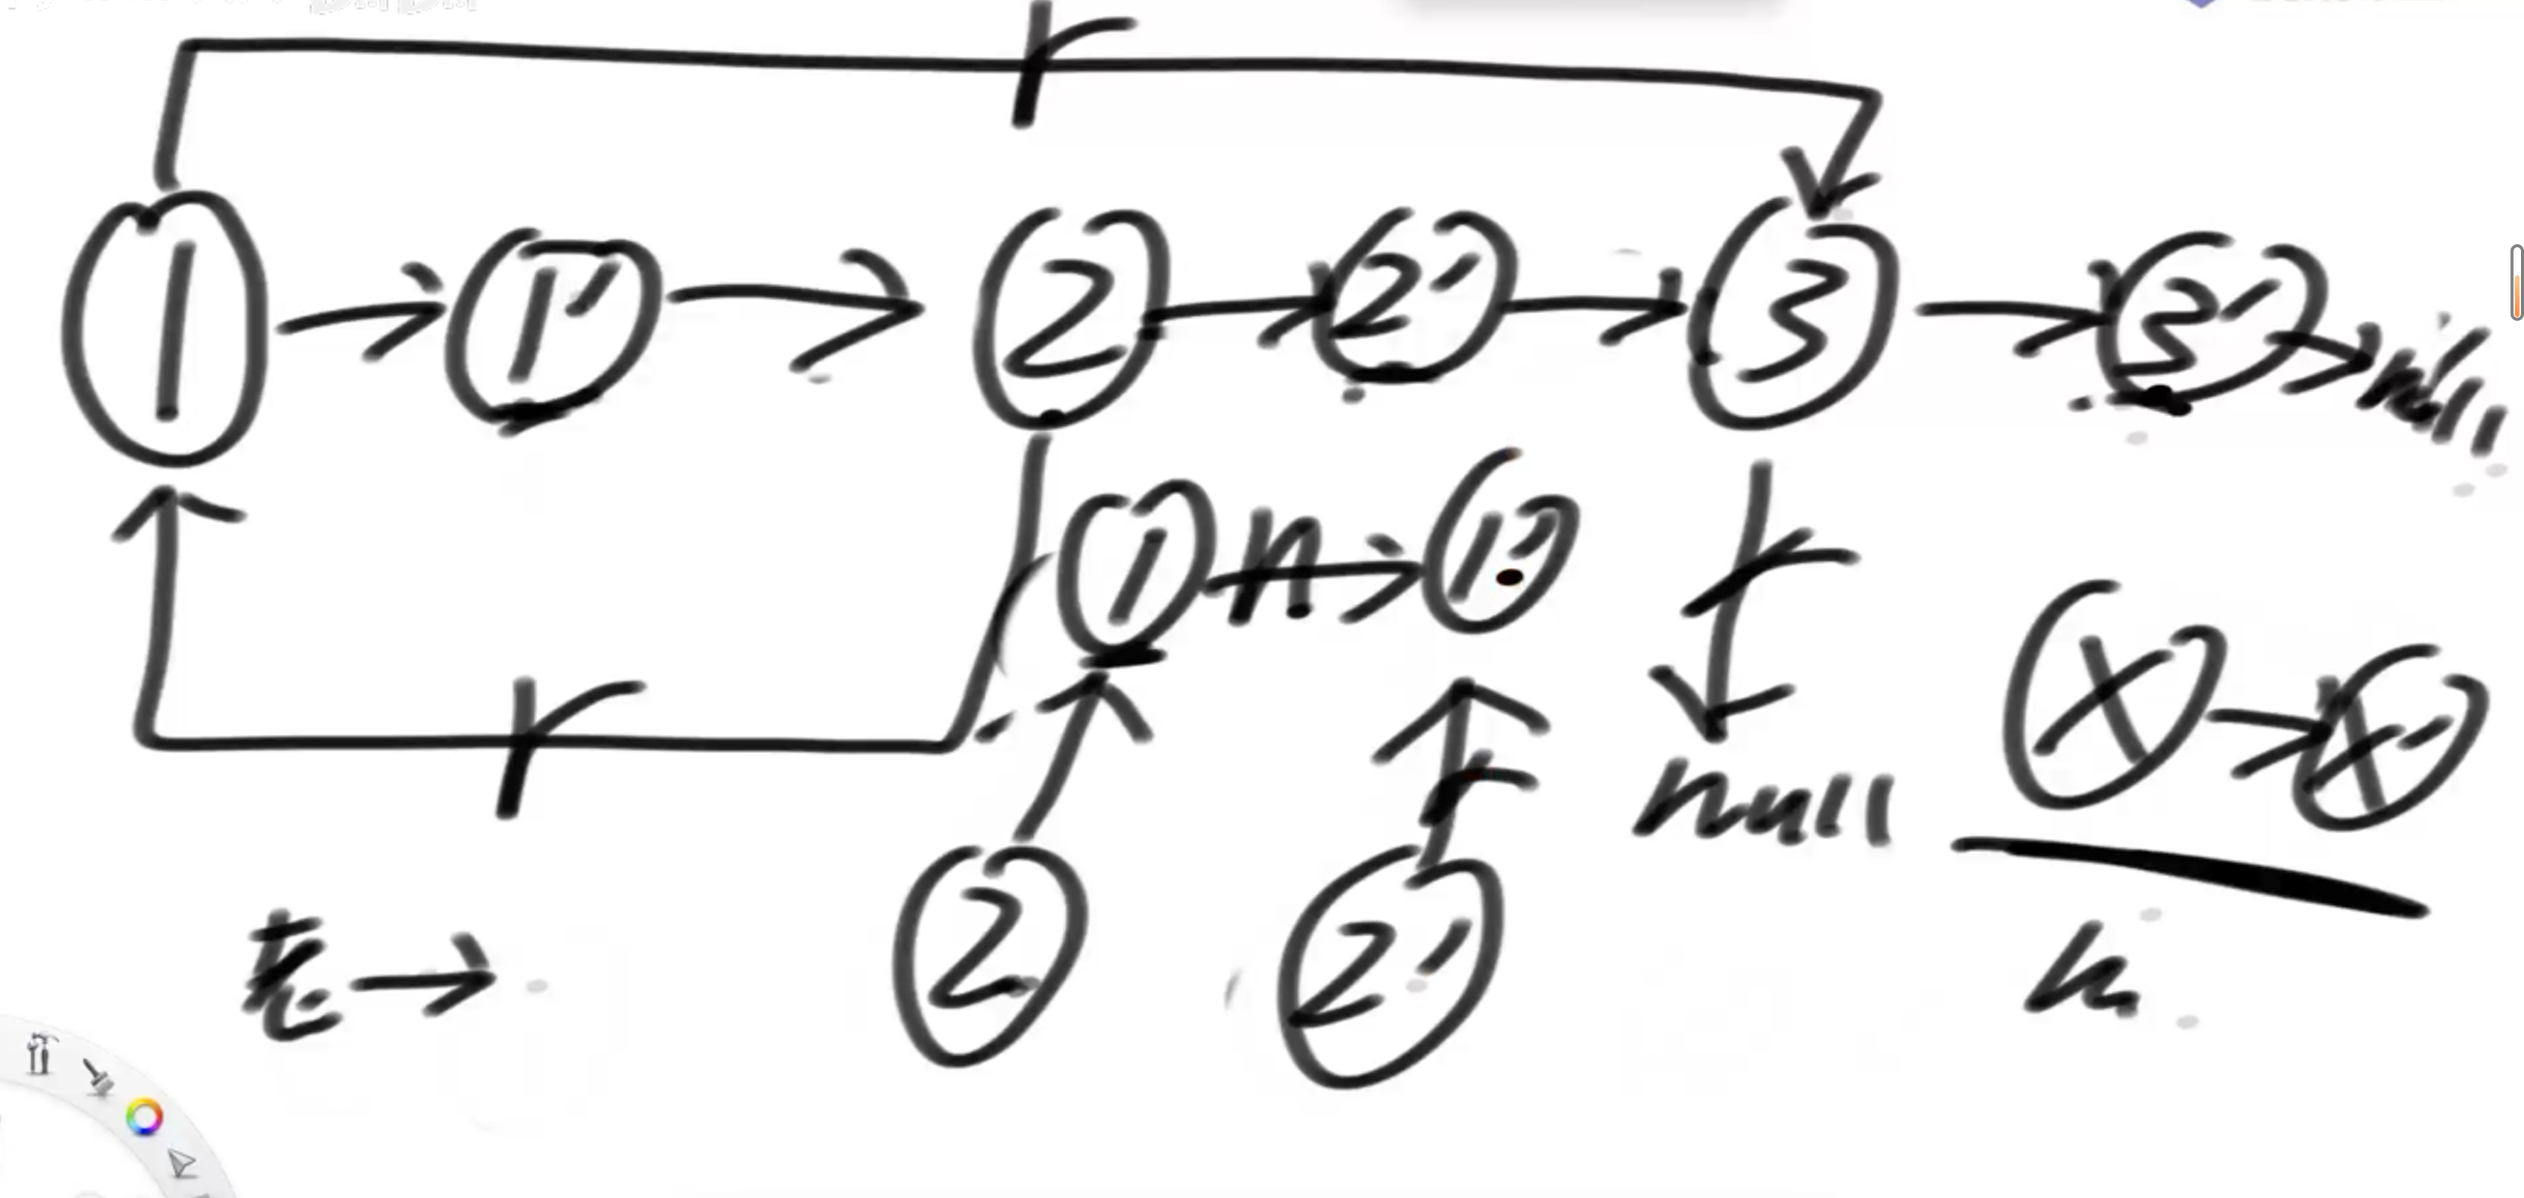 r
1 → 1' → 2 → 2' → 3 → 3' → null
1 n → 1' r
r r null X → X'
老 → 2 2' n